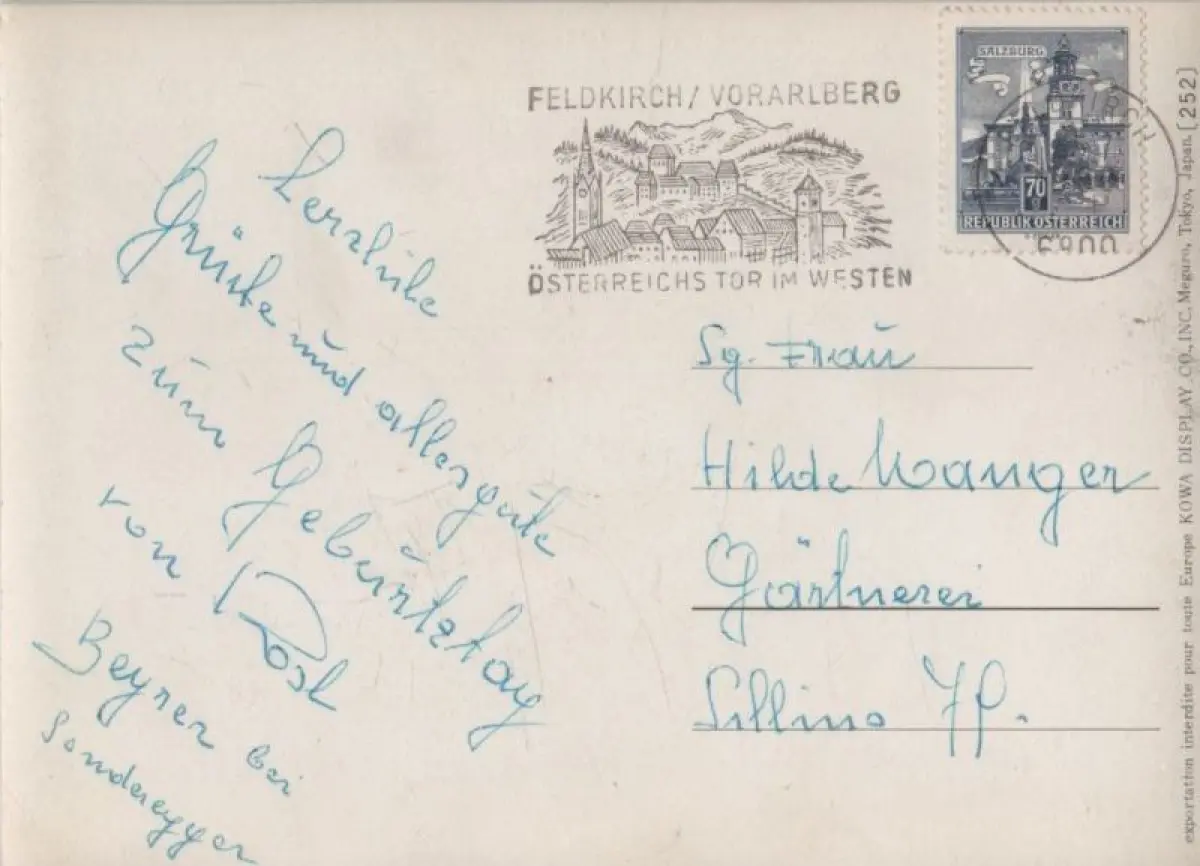 FELDKIRCH / VORARLBERG
ÖSTERREICHS TOR IM WESTEN
SALZBURG
70
g
REPUBLIK ÖSTERREICH
6800
Herzliche
Grüße und allergute
zum Geburtztag
von
Beyrer bei
Sonderegger
Sg. Frau
Hilde Wanger
Gärtnerei
exportation interdite pour toute Europe KOWA DISPLAY CO., INC. Meguro, Tokyo, Japan. [252]